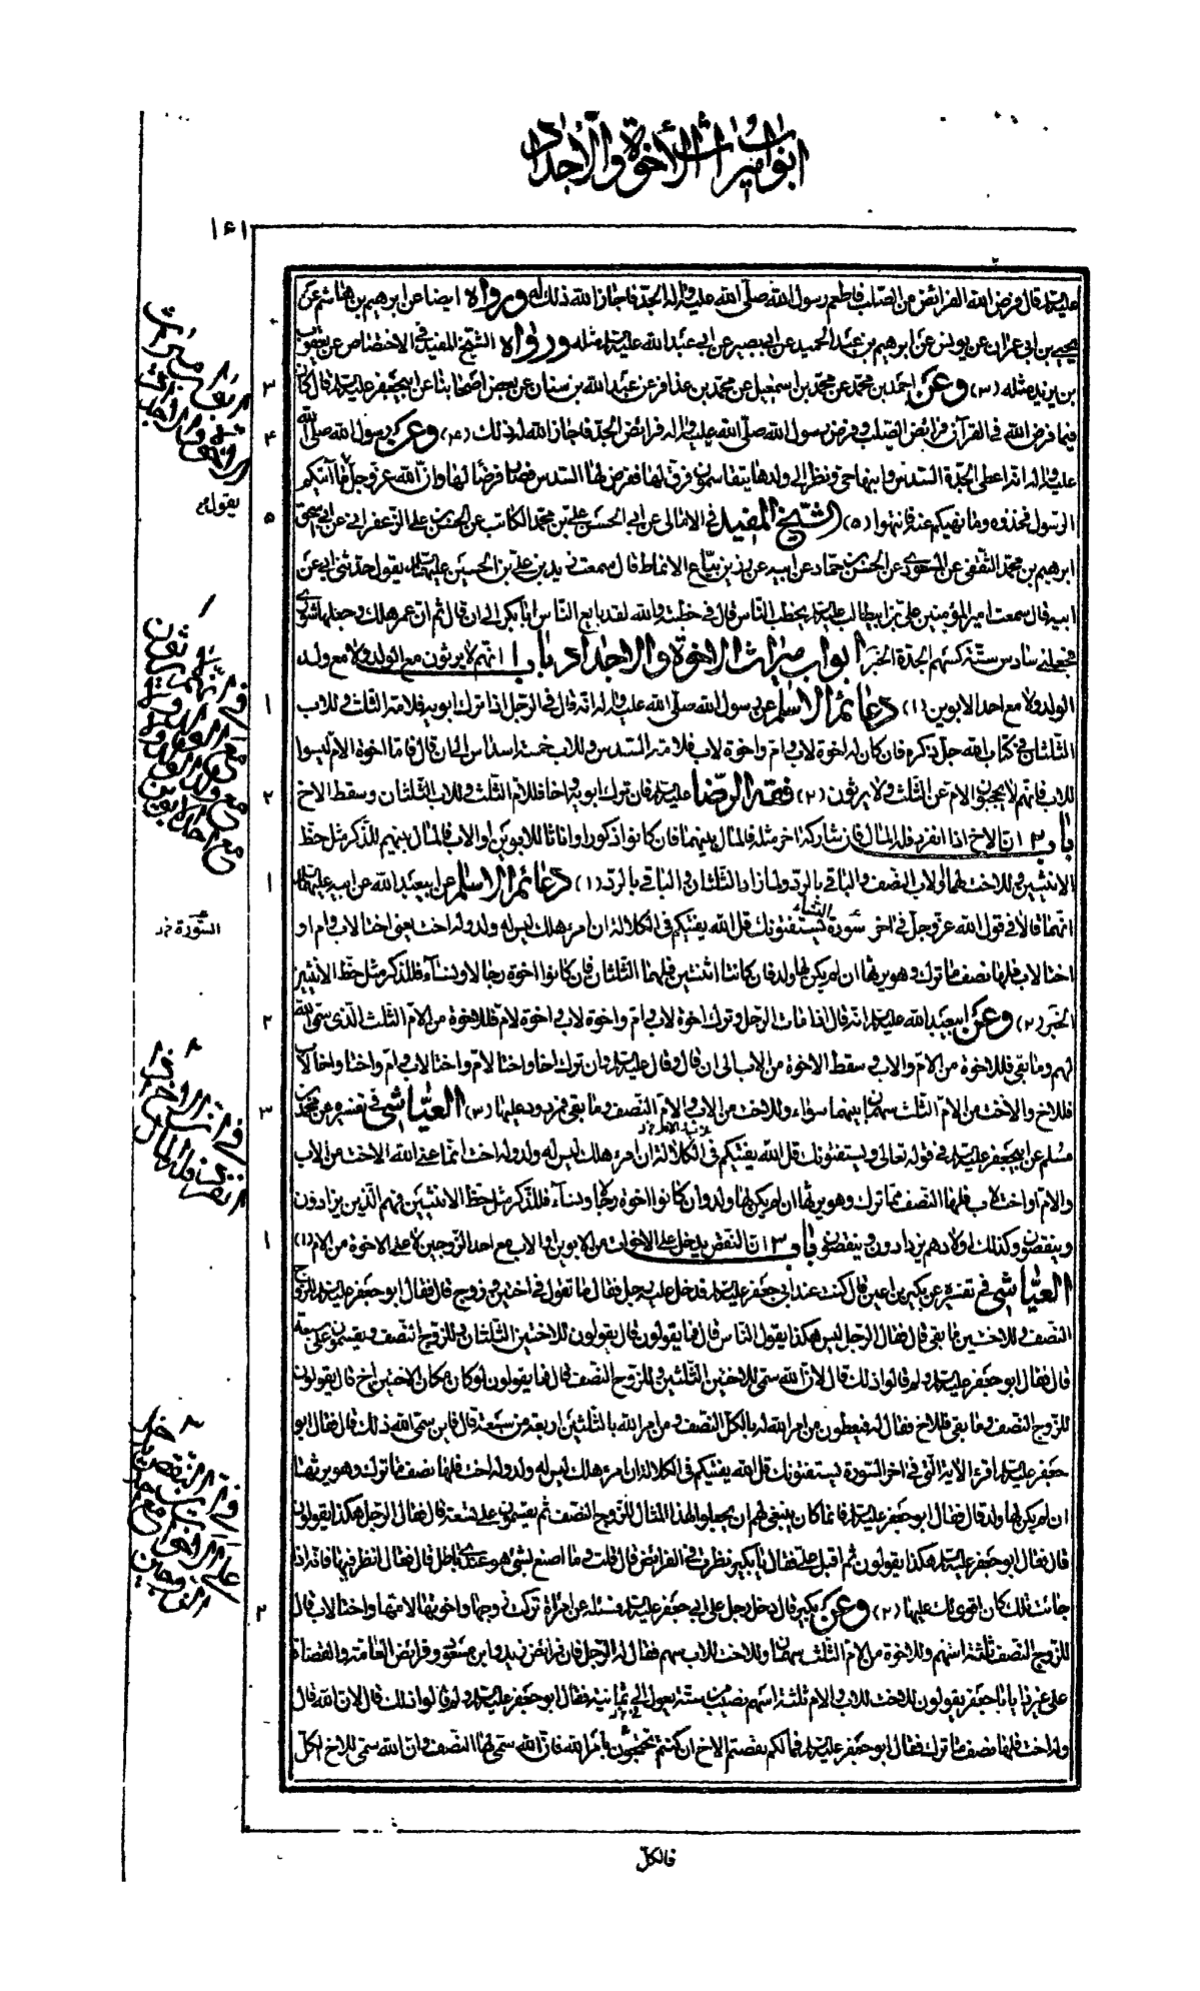 ابواب ميراث الأخوة والأجداد
١٦١
عليه السلام قال فرض الله الفرائض من الصلب فاطعم رسول الله صلى الله عليه واله الجد فاجاز الله ذلك له ورواه ايضا عن ابرهيم بن هاشم عن
يحيى بن ابى عمران عن يونس عن ابرهيم بن عبد الحميد عن ابى بصير عن ابى عبد الله عليه السلام مثله ورواه الشيخ المفيد فى الاختصاص عن يعقوب
بن يزيد مثله (٣) وعن احمد بن محمد عن محمد بن اسمعيل عن محمد بن عذافر عن عبد الله بن سنان عن بعض اصحابنا عن ابيجعفر عليه السلام قال كان
فيما فرض الله فى القرآن فرائض الصلب وفرض رسول الله صلى الله عليه واله فرائض الجد فاجاز الله له ذلك (٤) وعن رسول الله صلى الله
عليه واله انه اعطى الجدة السدس وابنها حى ونظر الى ولدها يتقاسمون فرق لها ففرض لها السدس فصار فرضا لها وان الله عز وجل قال ما آتيكم
الرسول فخذوه وما نهيكم عنه فانتهوا (٥) الشيخ المفيد فى الامالى عن ابى الحسن على بن محمد الكاتب عن الحسن بن على الزعفرانى عن ابى اسحق
ابرهيم بن محمد الثقفى عن المسعودى عن الحسن بن حماد عن ابيه عن رزين بياع الانماط قال سمعت زيد بن على بن الحسين عليهما السلام يقول حدثنى ابى عن
ابيه قال سمعت امير المؤمنين على بن ابيطالب عليه السلام يخطب الناس قال فى خطبته والله لقد بايع الناس ابا بكر الى ان قال ثم ان عمر هلك وجعلها شورى
فجعلنى سادس ستة كسهم الجدة الخبر ابواب ميراث الاخوة والاجداد باب ١ انهم لا يرثون مع الولد ولا مع ولد
الولد ولا مع احد الابوين (١) دعائم الاسلام عن رسول الله صلى الله عليه واله انه قال فى الرجل اذا ترك ابويه فلامه الثلث وللاب
الثلثان فى كتاب الله جل ذكره فان كان له اخوة لاب وام واخوة لاب فلامه السدس وللاب خمسة اسداس الى ان قال فاما اخوة الام ليسوا
للاب فانهم لا يحجبون الام عن الثلث ولا يرثون (٢) فقه الرضا عليه السلام فان ترك ابويه واخا فللام الثلث وللاب الثلثان وسقط الاخ
باب ٢ ان الاخ اذا انفرد فله المال فان شاركه اخر مثله فالمال بينهما فان كانوا ذكورا واناثا للابوين او الاب فالمال بينهم للذكر مثل حظ
الانثيين وللاخت لهما ولاب النصف والباقى بالرد ولما زاد الثلثان والباقى بالرد (١) دعائم الاسلام عن ابيعبد الله عن ابيه عليهما السلام
انهما قالا فى قول الله عز وجل فى اخر سورة النساء يستفتونك قل الله يفتيكم فى الكلالة ان امرء هلك ليس له ولد وله اخت يعنى اختا لاب وام او
اختا لاب فلها نصف ما ترك وهو يرثها ان لم يكن لها ولد فان كانتا اثنتين فلهما الثلثان فان كانوا اخوة رجالا ونساء فللذكر مثل حظ الانثيين
الخبر (٢) وعن ابيعبد الله عليه السلام انه قال اذا مات الرجل وترك اخوة لاب وام واخوة لاب واخوة لام فللاخوة من الام الثلث الذى سمى الله
لهم وما بقى فللاخوة من الام والاب وسقط الاخوة من الاب الى ان قال وقال عليه السلام وان ترك اخا واختا لام واختا لاب وام واختا واخا لاب
فللاخ والاخت من الام الثلث سهمان بينهما سواء وللاخت من الاب والام النصف وما بقى فمردود عليها (٣) العياشى فى تفسيره عن محمد بن
مسلم عن ابيجعفر عليه السلام فى قوله تعالى يستفتونك قل الله يفتيكم فى الكلالة ان امرء هلك ليس له ولد وله اخت انما عنى الله الاخت من الاب
والام او اخت لاب فلها النصف مما ترك وهو يرثها ان لم يكن لها ولد وان كانوا اخوة رجالا ونساء فللذكر مثل حظ الانثيين فهم الذين يزادون
وينقصون وكذلك اولادهم يزدادون وينقصون باب ٣ ان النقص يدخل على الاخوات من الابوين او الاب مع احد الزوجين لا على الاخوة من الام (١)
العياشى فى تفسيره عن بكير بن اعين قال كنت عند ابى جعفر عليه السلام فدخل عليه رجل فقال ما تقول فى اختين وزوج قال فقال ابو جعفر عليه السلام للزوج
النصف وللاختين ما بقى قال فقال الرجل ليس هكذا يقول الناس قال فما يقولون قال يقولون للاختين الثلثان وللزوج النصف ويقسمون على سبعة
قال فقال ابو جعفر عليه السلام ولم قالوا ذلك قال لان الله سمى للاختين الثلثين وللزوج النصف قال فما يقولون لو كان مكان الاختين اخ قال يقولون
للزوج النصف وما بقى فللاخ فقال له فيعطون من امر الله له بالكل النصف ومن امر الله بالثلثين اربعة من سبعة قال فاين سمى الله ذلك قال فقال ابو
جعفر عليه السلام اقرء الاية التى فى اخر السورة يستفتونك قل الله يفتيكم فى الكلالة ان امرء هلك ليس له ولد وله اخت فلها نصف ما ترك وهو يرثها
ان لم يكن لها ولد قال فقال ابو جعفر عليه السلام فانما كان ينبغى لهم ان يجعلوا لهذا المال للزوج النصف ثم يقسمون على تسعة قال فقال الرجل هكذا يقولون
قال فقال ابو جعفر عليه السلام هكذا يقولون ثم اقبل على فقال يا بكير نظرت فى الفرائض قال قلت وما اصنع بشىء هو عندى باطل قال فقال انظر فيها فانه اذا
جائت تلك كان اقوى لك عليها (٢) وعن بكير قال دخل رجل على ابى جعفر عليه السلام فسئله عن امرأة تركت زوجها واخوتها لامها واختا لاب قال
للزوج النصف ثلثة اسهم وللاخوة من الام الثلث سهمان وللاخت للاب سهم فقال له الرجل فان فرائض زيد وابن مسعود وفرائض العامة والقضاة
على غير ذا يا ابا جعفر يقولون للاخت للاب والام ثلثة اسهم نصيب من ستة يعول الى ثمانية فقال ابو جعفر عليه السلام ولم قالوا ذلك قال لان الله قال
وله اخت فلها نصف ما ترك فقال ابو جعفر عليه السلام فما لكم نقصتم الاخ ان كنتم تحتجون بامر الله فان الله سمى لها النصف وان الله سمى للاخ الكل
فالكل
ابواب ميراث الاخوة والاجداد
يقول
١ باب انهم لا يرثون مع الولد ولا مع ولد الولد ولا مع احد الابوين
السورة
٢ باب ان الاخ اذا انفرد فله المال
٣ باب ان النقص يدخل على الاخوات مع احد الزوجين